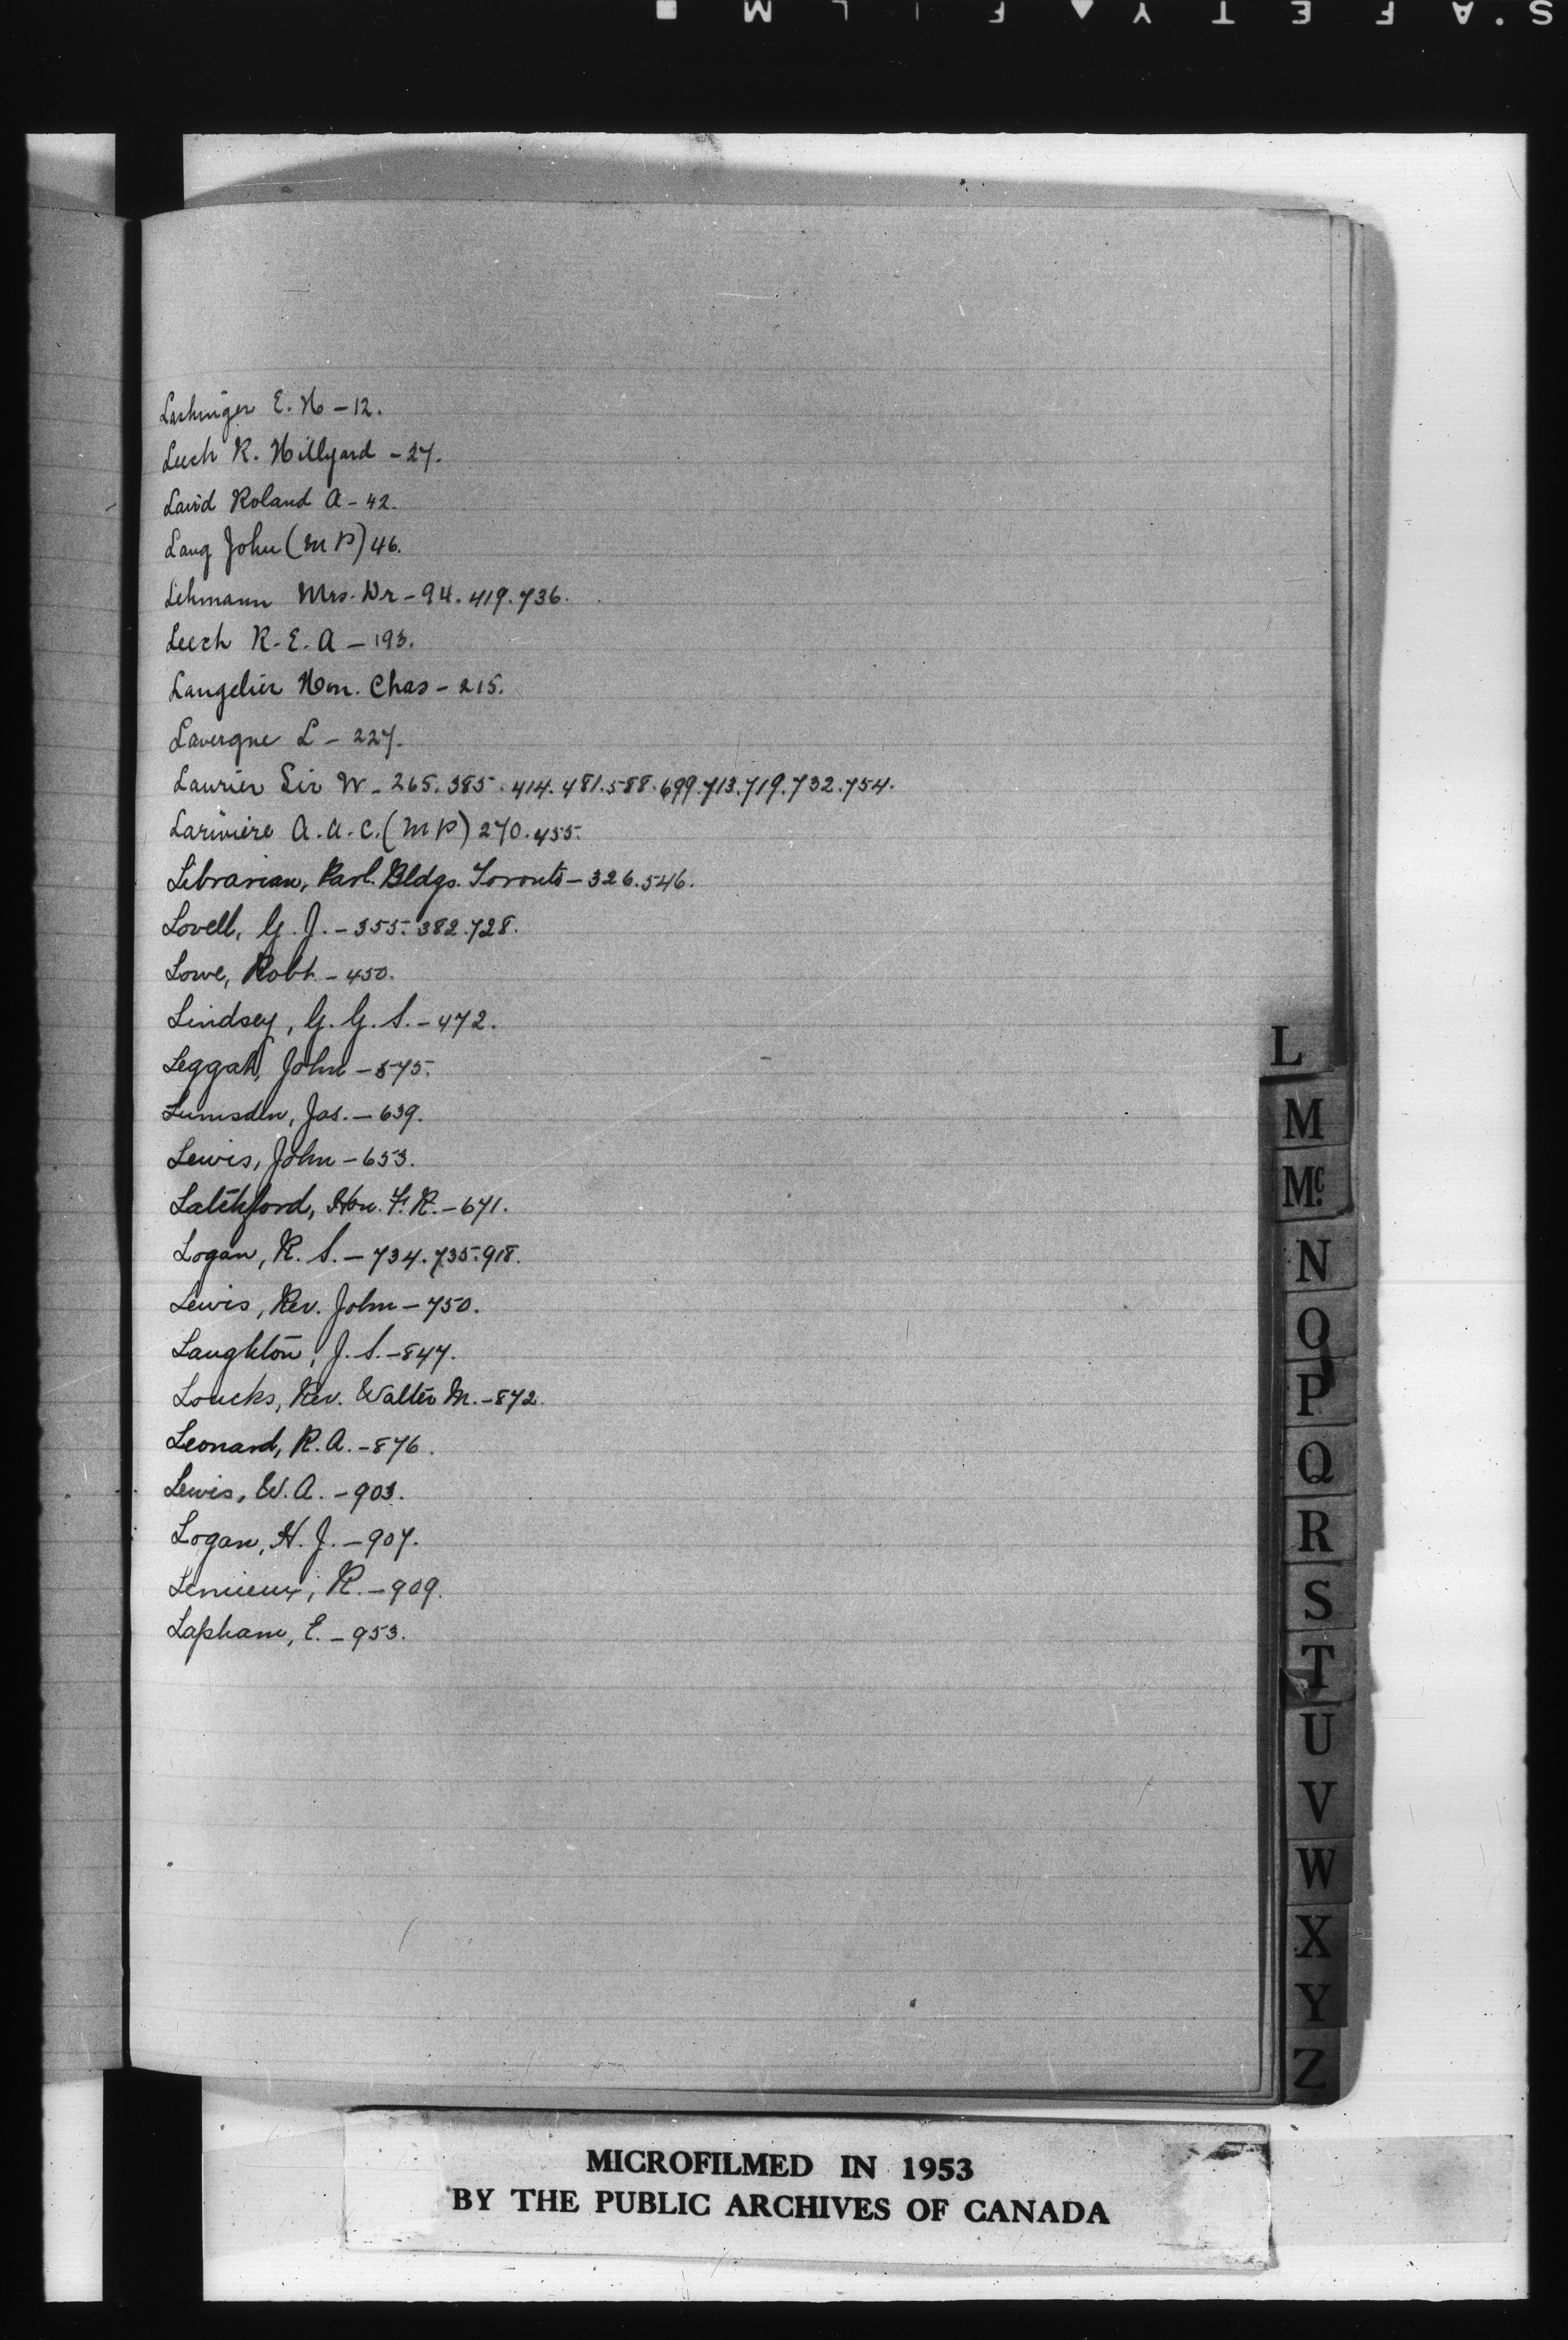 Lashinger E. H - 12.
Leech R. Hillyard - 27.
Laird Roland A - 42.
Lang John (MP) 46.
Lehmann Mrs. Dr - 94. 419. 736.
Leech R. E. A - 193.
Langelier Hon. Chas - 215.
Lavergne L - 227.
Laurier Sir W - 265. 385. 414. 481. 588. 699. 713. 719. 732. 754.
Lariviere A. A. C. (MP) 270. 455.
Librarian, Parl. Bldgs. Toronto - 326. 546.
Lovell, G. J. - 355. 382. 728.
Lowe, Robt - 450.
Lindsey, G. G. S. - 472.
Leggatt, John - 575.
Lumsden, Jas. - 639.
Lewis, John - 653.
Latchford, Hon. F. R. - 671.
Logan, R. S. - 734. 735. 918.
Lewis, Rev. John - 750.
Laughton, J. S. - 847.
Loucks, Rev. Walter M. - 872.
Leonard, R. A. - 876.
Lewis, W. A. - 903.
Logan, H. J. - 907.
Lemieux, R. - 909.
Lapham, E. - 953.
L
M
Mc.
N
O
P
Q
R
S
T
U
V
W
X
Y
Z
MICROFILMED IN 1953
BY THE PUBLIC ARCHIVES OF CANADA